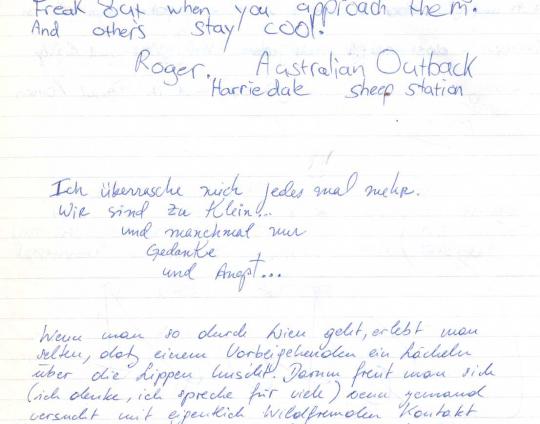 Freak out when you approach them.
And others stay cool.
Roger. Australian Outback
Harriedale sheep station
Ich überrasche mich jedes mal mehr.
Wir sind zu Klein...
und manchmal nur
Gedanke
und Angst...
Wenn man so durch Wien geht, erlebt man
selten, daß einem Vorbeigehenden ein Lächeln
über die Lippen huscht. Darum freut man sich
(ich denke, ich spreche für viele) wenn jemand
versucht mit eigentlich Wildfremden Kontakt